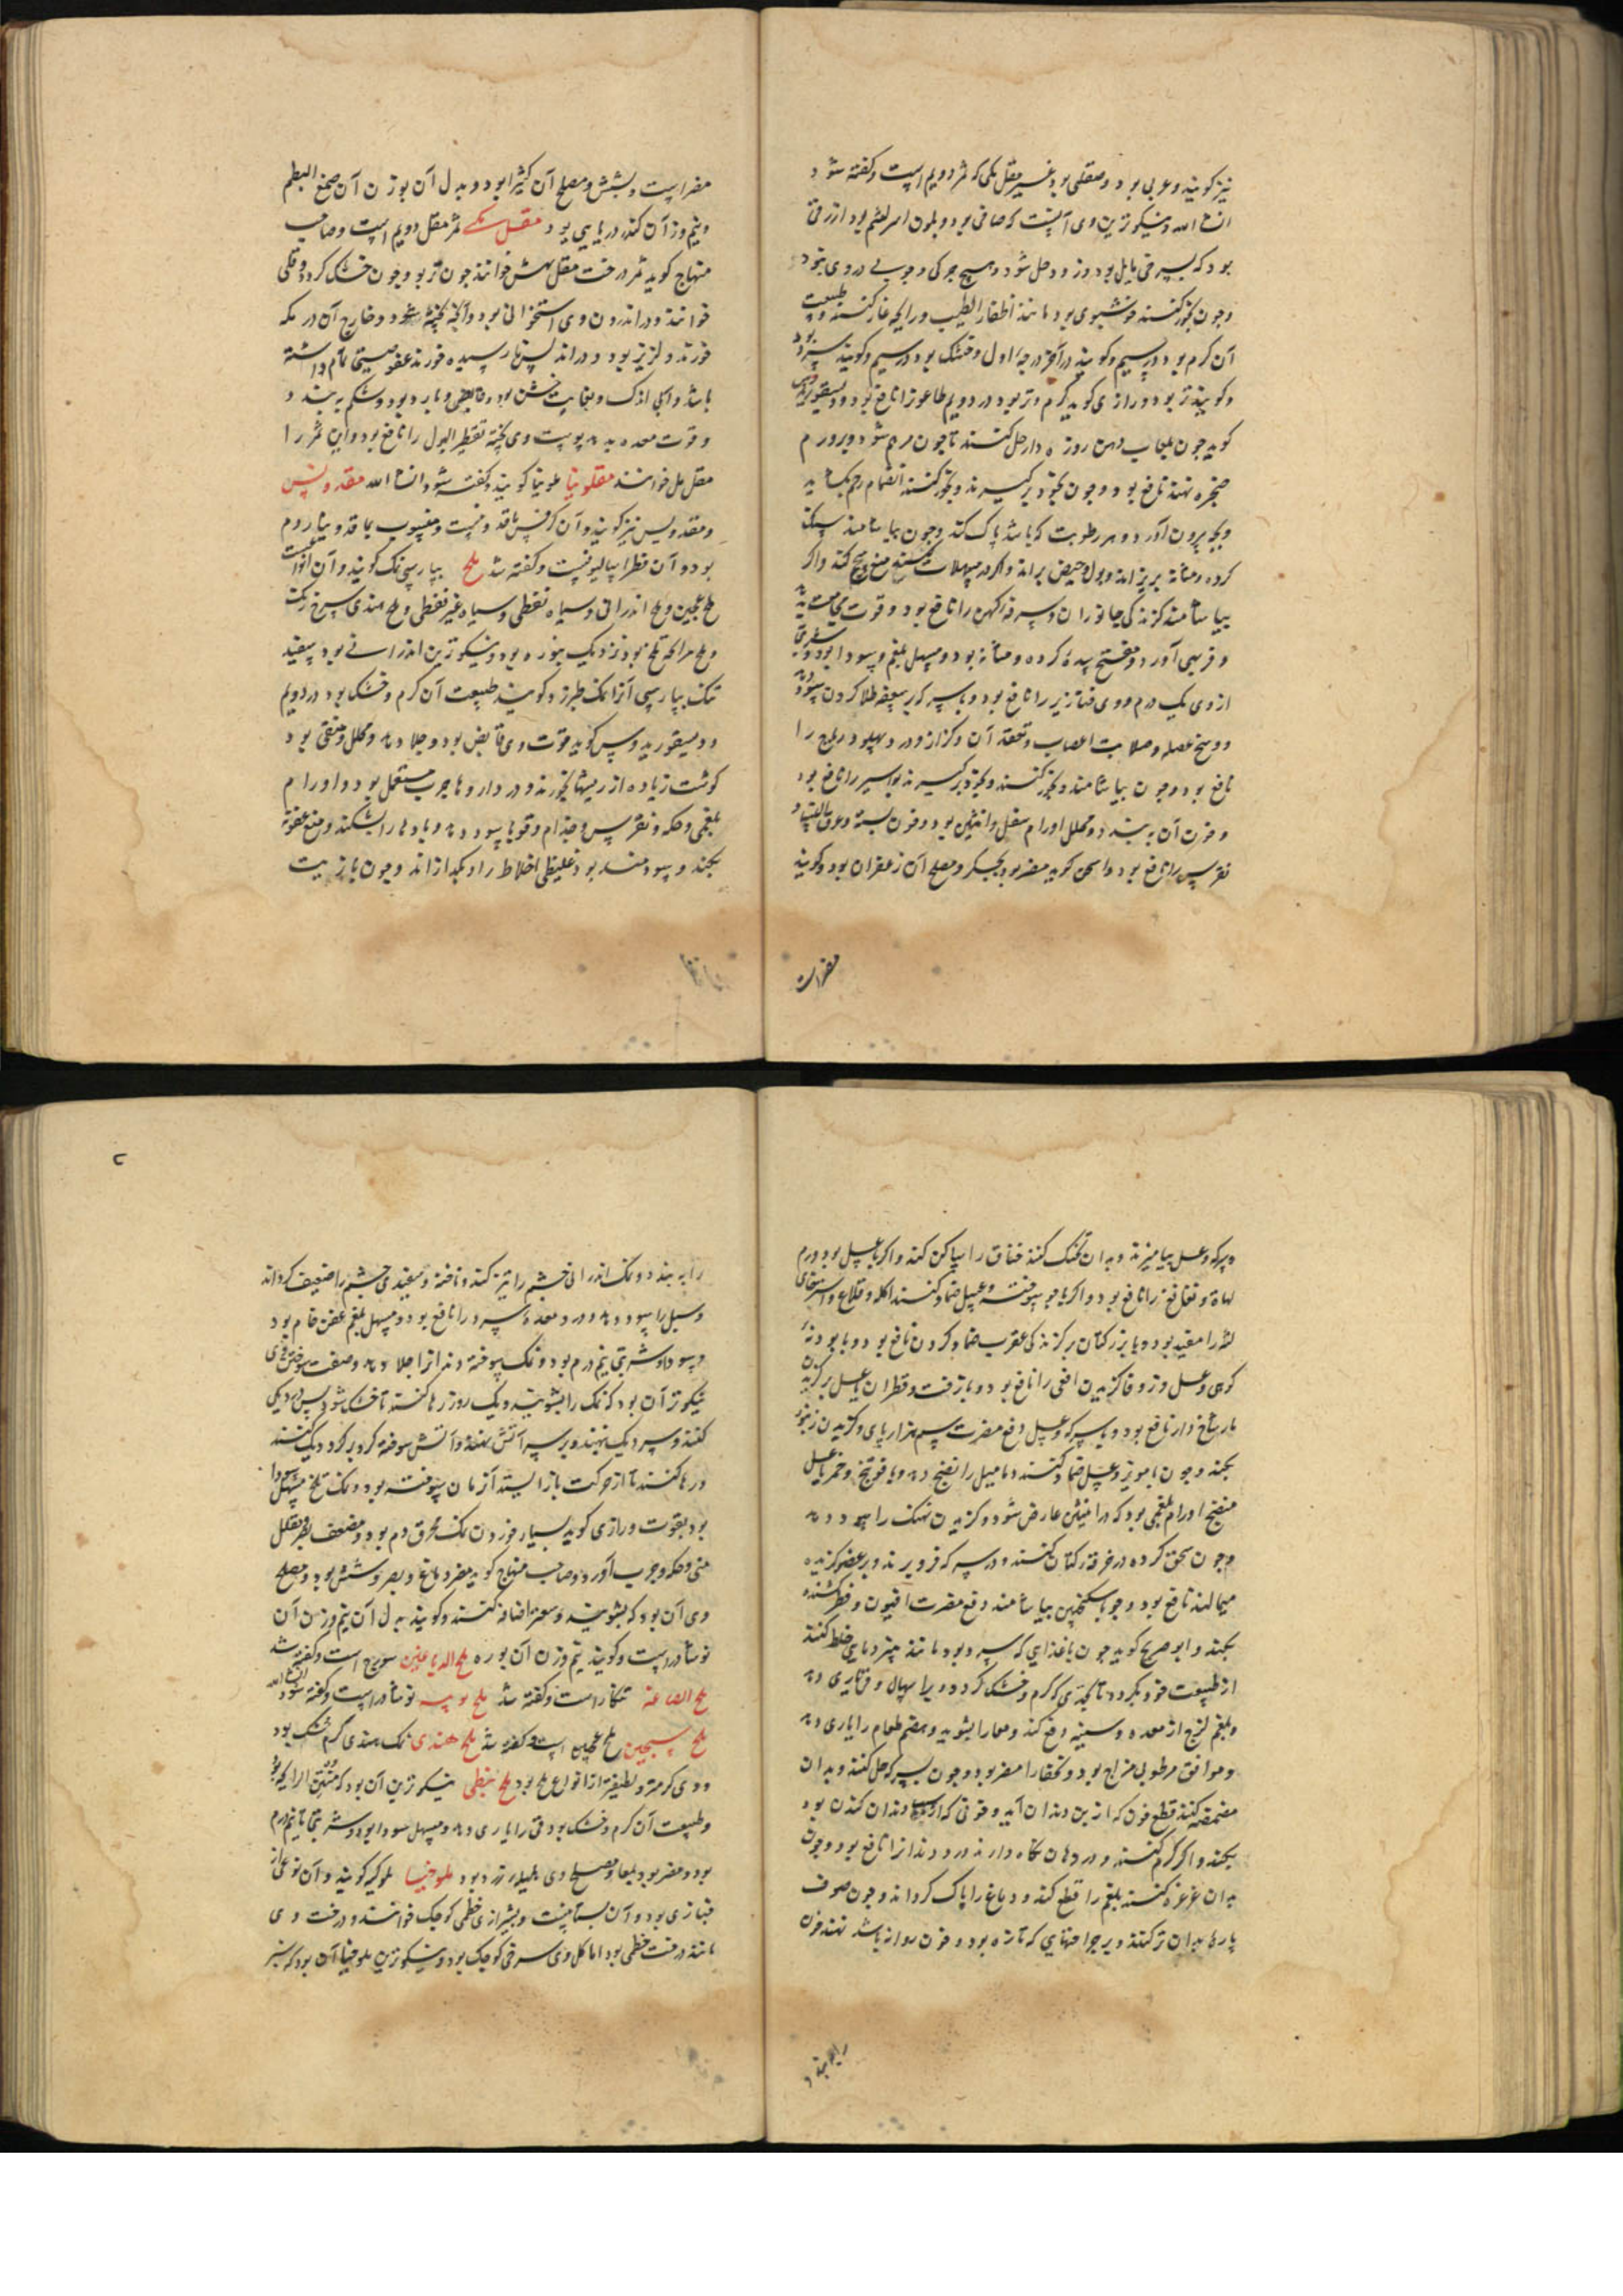 نیز گویند و عربی بود و صقلی بود غیر مقل مکی که ثمر دویم است و گفته شود
انشا الله و نیکوترین وی آنست که صافی بود و بلون
بود که بسرخی مایل بود و زود حل شود و هیچ چرکی و چوبی در وی نبود
و چون بخور کنند خوشبوی بود مانند اظفار الطیب و رایحه غار کنند و طبیعت
آن گرم بود در سیم و گویند در آخر درجه اول و خشک بود در سیم و گویند سرد بود
و گویند تر بود و رازی گوید گرم و تر بود در دویم طاعون را نافع بود و دیسقوریدوس
گوید چون بلعاب دهن روزه دار حل کنند تا چون مرهم شود و بر ورم
حنجره نهند نافع بود و چون بخود برگیرند و بخور کنند انضمام رحم بگشاید
و بچه بیرون آورد و هر رطوبت که باشد پاک کند و چون بیاشامند سنگ
گرده و مثانه بریزاند و بول و حیض براند و اگر در مسهلات کنند منع سحج کند و اگر
بیاشامند گزندگی جانوران و سرفه کهن را نافع بود و قوت مجامعت بدهد
و فربهی آورد و مفتح سده گرده و مثانه بود و مسهل بلغم و سودا بود و شربتی
از وی یک درم و وی خنازیر را نافع بود و با سرکه بر سعفه طلا کردن سود دهد
و وسخ عضله و صلابت اعصاب و تعقد آن و کزاز و درد پهلو و ریح را
نافع بود و چون بیاشامند و بخور کنند و بخود برگیرند بواسیر را نافع بود
و خون آن ببندد و محلل اورام سفل و انثیین بود و خون بسته و عرق النسا و
نقرس را نافع بود و اسحق گوید مضر بود بجگر و مصلح آن زعفران بود و گویند
مضر است
مضر است بشش و مصلح آن کثیرا بود و بدل آن بوزن آن صمغ البطم
و نیم وزن آن کندر دریایی بود مقل مکی ثمر مقل دویم است و صاحب
منهاج گوید ثمر درخت مقل بهش خوانند چون تر بود و چون خشک گردد وقل
خوانند و در اندرون وی استخوانی بود و آنچه پخته شود و خارج آن در مکه
خورند و لذیذ بود و در اندلس نارسیده خورند عفوصتی تمام داشته
باشد و آبی اندک و بغایت خشن بود و قابض و بارد بود و شکم ببندد و
و قوت معده بدهد و پوست وی پخته تقطیر البول را نافع بود و این ثمر را
مقل مل خوانند مقلونیا ملونیا گویند و گفته شود انشا الله مقدونس
و مقدولیس نیز گویند و آن کرفس ماقدونیست و منسوب بماقدونیا روم
بود و آن فطراسالیونیست و گفته شد ملح بپارسی نمک گویند و آن انواعست
ملح عجین و ملح اندرانی و سیاه نفطی و سیاه غیر نفطی و ملح هندی سرخ رنگ
و ملح مر که تلخ بود نزدیک ببوره بود و نیکوترین اندرانی بود سفید
نمک بپارسی آنرا نمک طبرزد گویند طبیعت آن گرم و خشک بود در دویم
و دیسقوریدوس گوید قوت وی قابض بود و جلا دهد و محلل و منقی بود
گوشت زیاده از ریشها بخورد و در داروها جرب مستعمل بود و اورام
بلغمی و حکه و نقرس و جذام و قوبا سود دهد و بادها را بشکند و منع عفونة
بکند و سودمند بود غلیظی اخلاط را و بگدازاند و چون با زیت
و سرکه و عسل بیامیزند و بدان تحنک کنند خناق را ساکن کند و اگر با عسل بود ورم
لهاة و نغانغ را نافع بود و اگر با جو سوخته و عسل ضماد کنند اکله و قلاع و استرخای
لثه را مفید بود و با بزر کتان بر گزندگی عقرب ضماد کردن نافع بود و با پودنه
کوهی و عسل و زوفا گزیدن افعی را نافع بود و با زفت و قطران یا عسل بر گزیدن
مار شاخ دار نافع بود و با سرکه و عسل دفع مضرت سم هزارپای و گزیدن زنبور
بکند و چون با مویز و عسل ضماد کنند دمامیل را نضج دهد و با فوتنج و خمر یا عسل
منضج اورام بلغمی بود که در انثیین عارض شود و گزیدن نهنگ را سود دهد
و چون سحق کرده در خرقه کتان کنند و در سرکه فرو برند و بر عضو گزیده
میمالند نافع بود و چون با سکنجبین بیاشامند دفع مضرت افیون و فطر کشنده
بکند و ابو جریج گوید چون با غذایی که سرد بود مانند پنیر و ماهی خلط کنند
از طبیعت خود بگردد تا بحدی که گرم و خشک گردد و بر اسهال و قی یاری دهد
و بلغم لزج از معده و سینه دفع کند و معا را بشوید و هضم طعام را یاری دهد
و موافق مرطوبی مزاج بود و نحفا را مضر بود و چون بسرکه حل کنند و بدان
مضمضه کنند قطع خون که از بن دندان آید و خونی که از دندان کندن بود
بکند و اگر گرم کنند و در دهان نگاه دارند درد دندان را نافع بود و چون
بدان غرغره کنند بلغم را قطع کند و دماغ را پاک گرداند و چون صوف
پاره بدان تر کنند و بر جراحتهایی که تازه بود و خون روانه باشد نهند خون
را ببندد
را ببندد و نمک اندرانی چشم را تیز کند و ناخنه و سفیدی چشم را ضعیف گرداند
و سبل را سود دهد و درد معده سرد را نافع بود و مسهل بلغم عفن خام بود
و سودا و شربتی نیم درم بود و نمک سوخته دندان را جلا دهد و صفت سوختن وی
نیکوتر آن بود که نمک را بشویند و یک روز رها کنند تا خشک شود پس در دیگی
کنند و سر دیگ نهند و بر سر آتش نهند و آتش سوخته گرد بر گرد دیگ کنند
و رها کنند تا از حرکت باز ایستد آن زمان سوخته بود و نمک تلخ مسهل سودا
بود بقوت و رازی گوید بسیار خوردن نمک محرق دم بود و مضعف بصر و مقلل
منی و حکه و جرب آورد و صاحب منهاج گوید مضر دماغ و بصر و شش بود و مصلح
وی آن بود که بشویند و سعتر اضافه کنند و گویند بدل آن نیم وزن آن
نوشادرست و گویند نیم وزن آن بوره ملح الدباغین سورج است و گفته شد
ملح الصاغه تنکار است و گفته شد ملح بوسه نوشادر است و گفته شود انشا الله
ملح سبجین ملح عجین است و گفته شد ملح هندی نمک هندی گرم و خشک بود
و وی گرمتر و لطیفتر از انواع ملح بود ملح نبطی نیکوترین آن بود که منتن الرایحه بود
و طبیعت آن گرم و خشک بود قی را یاری دهد و مسهل سودا بود و شربتی تا نیم درم
بود و مضر بود بمعا و مصلح وی هلیله زرد بود ملوخیا ملوکیه گویند و آن نوعی از
خبازی بود و آن بستانیست و بشیرازی خطمی کوچک خوانند و درخت وی
مانند درخت خطمی بود اما گل وی سرخی کوچک بود و نیکوترین ملوخیا آن بود که سبز